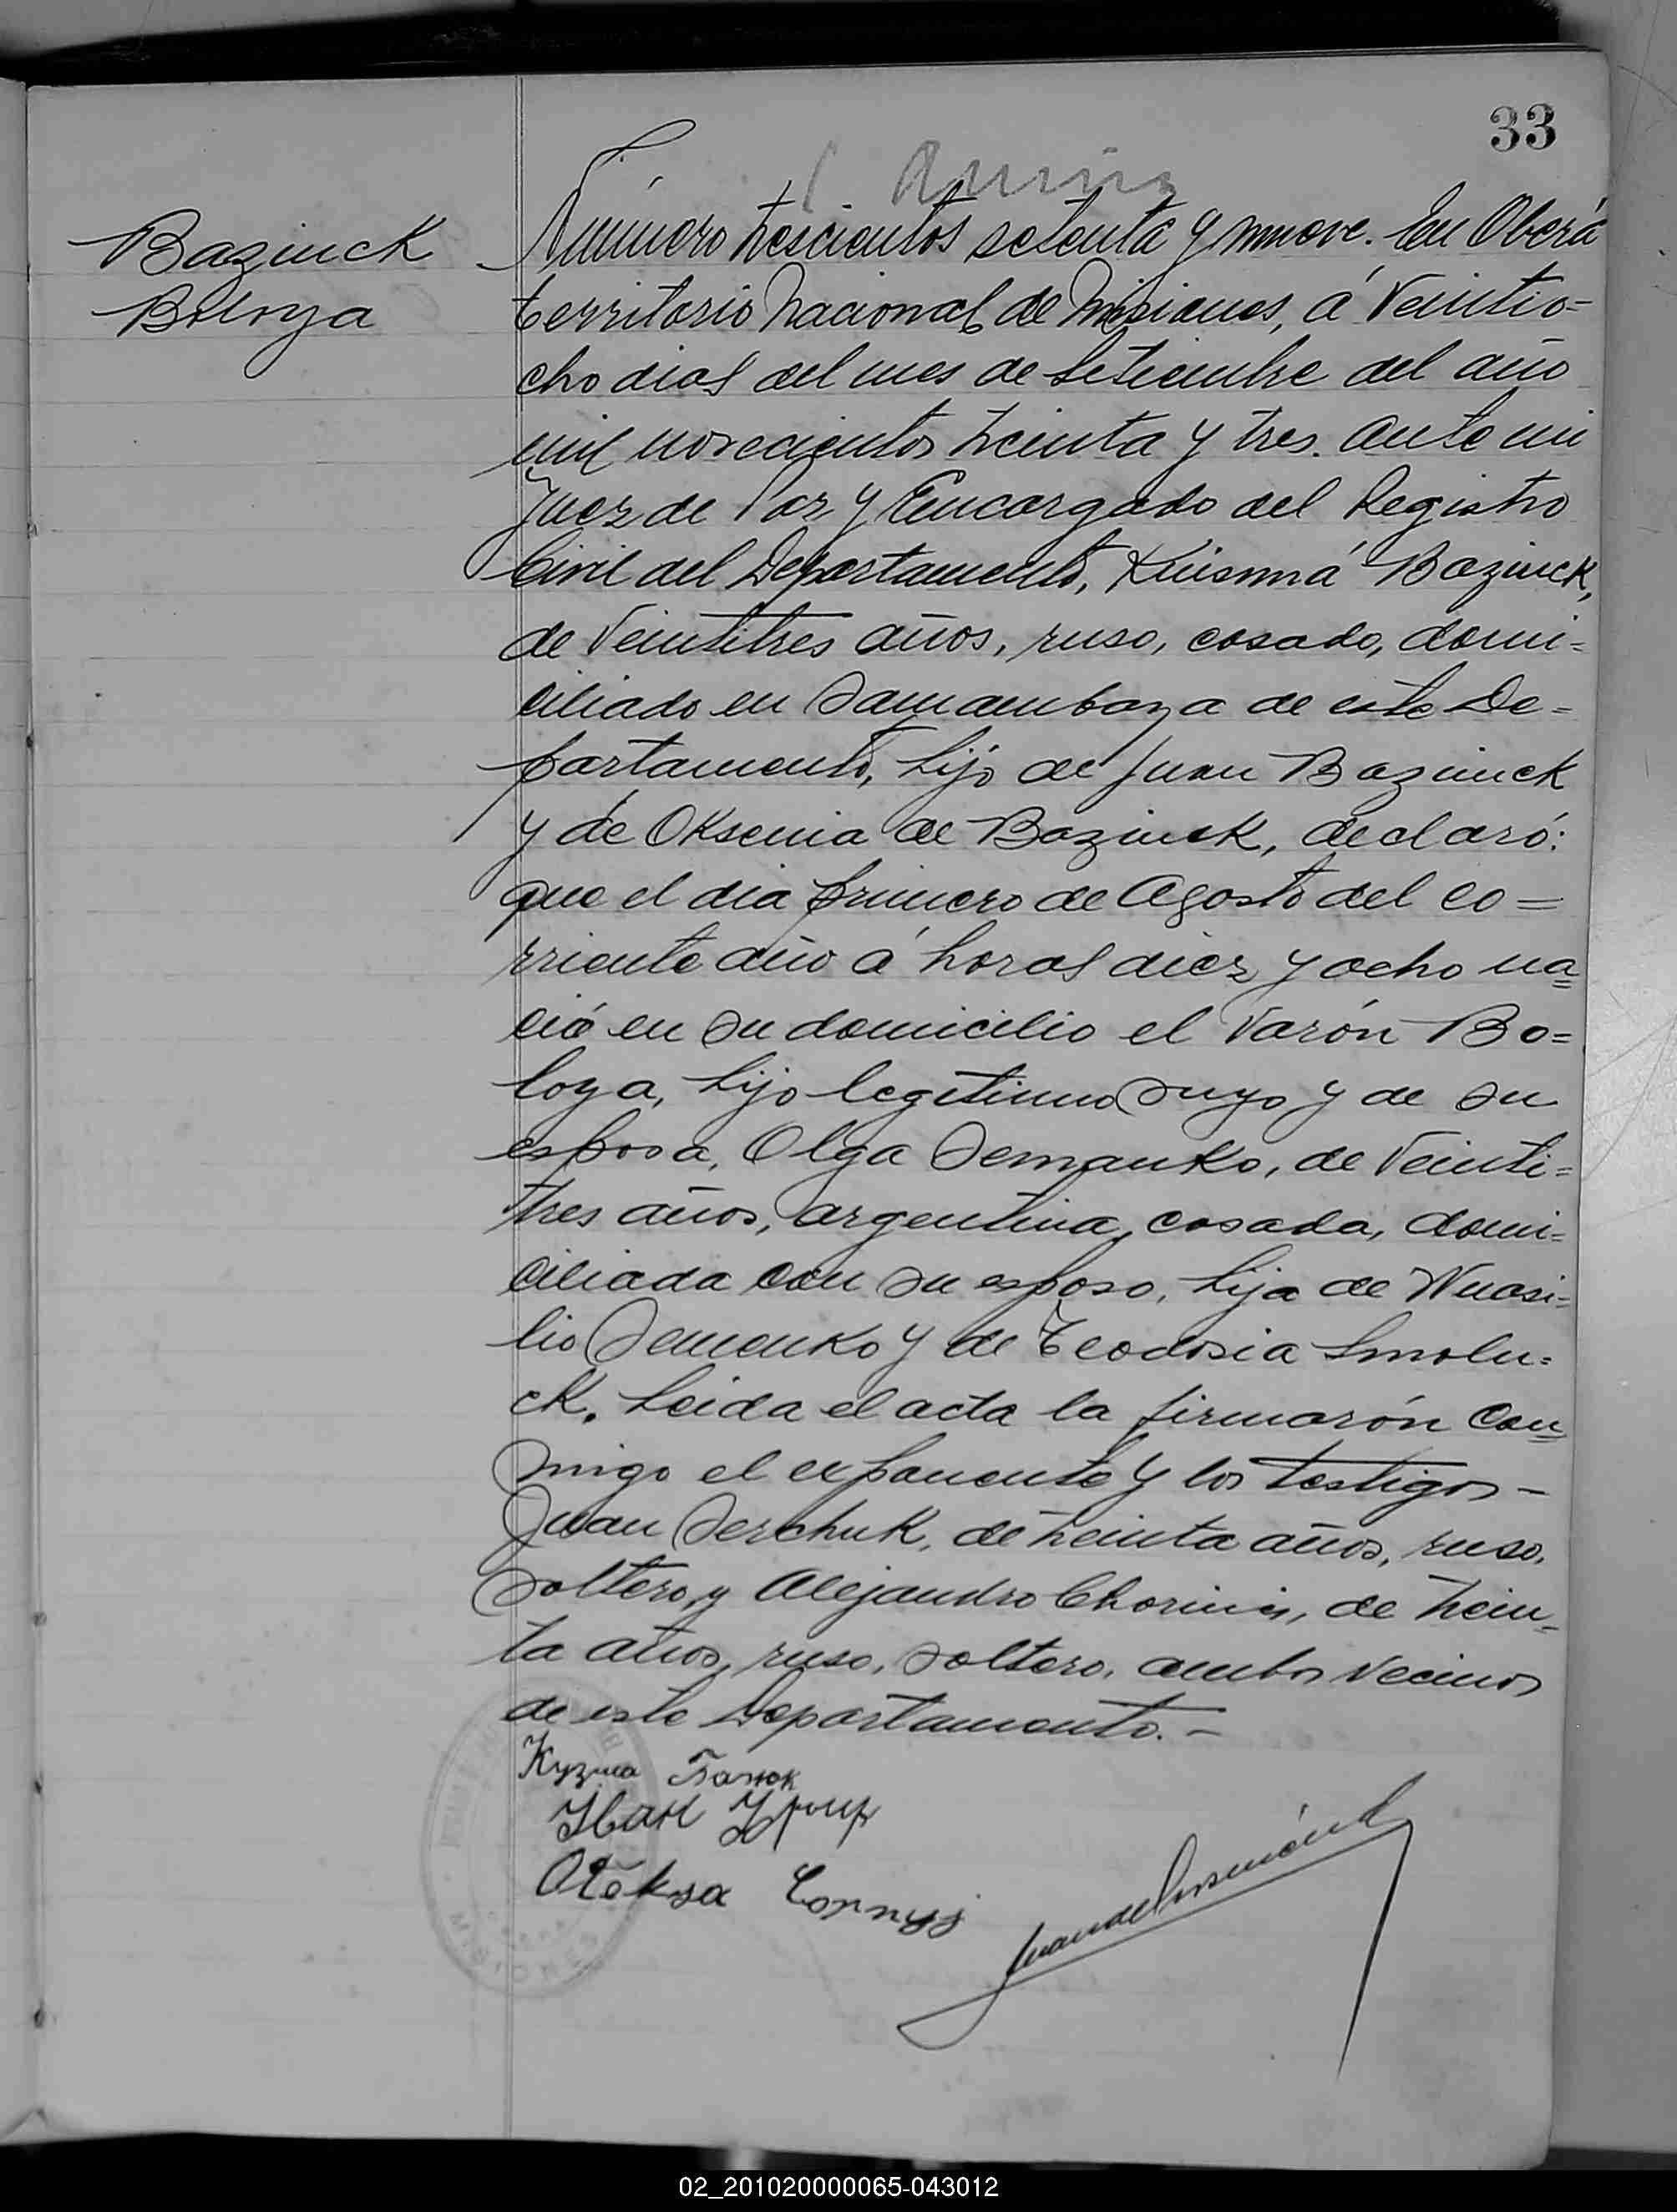 33
Bazinck
Boloya
Número trescientos setenta y nueve. En Oberá
territorio Nacional de Misiones, á Veintio-
cho dias del mes de Setiembre del año
mil novecientos treinta y tres. ante mi
Juez de Paz y Encargado del Registro
Civil del Departamento, Kuismá Bazinck,
de Veintitres años, ruso, casado, domi-
ciliado en Samambaya de este De-
partamento, hijo de Juan Bazinck
y de Oksenia de Bazinck, declaró:
que el dia primero de Agosto del co=
rriente año á horas diez y ocho na=
ció en su domicilio el Varón Bo=
loya, hijo legitimo suyo y de su
esposa, Olga Semanko, de Veinti=
tres años, argentina, casada, domi-
ciliada con su esposo, hija de Wuasi-
lio Semenko y de Teodosia Smolu=
ck. Leida el acta la firmarón con=
migo el exponente y los testigos -
Juan Serchuk, de treinta años, ruso,
soltero, y Alejandro de trein-
ta años, ruso, soltero, ambos vecinos
de este Departamento. -
Кузма
Іван
Oleksa Cornyj
MISIONES
02_201020000065-043012